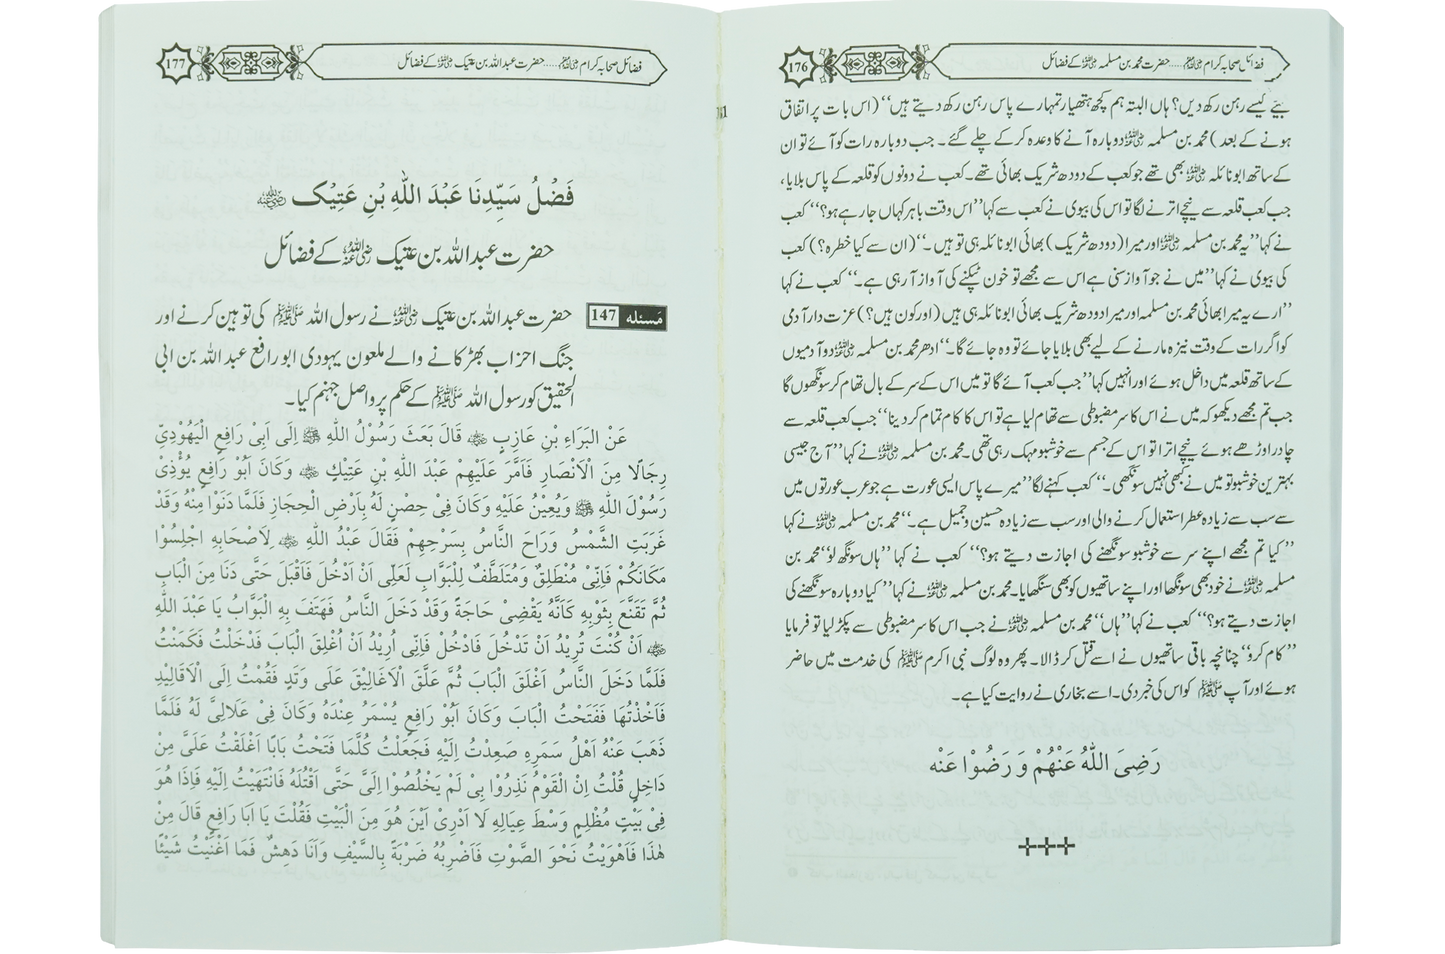 فضائل صحابہ کرام ﷢..... حضرت محمد بن مسلمہ ﷜ کے فضائل
176
بیٹے کیسے رہن رکھ دیں؟ ہاں البتہ ہم کچھ ہتھیار تمہارے پاس رہن رکھ دیتے ہیں‘‘ (اس بات پر اتفاق
ہونے کے بعد) محمد بن مسلمہ ﷜ دوبارہ آنے کا وعدہ کر کے چلے گئے۔ جب دوبارہ رات کو آئے تو ان
کے ساتھ ابو نائلہ ﷜ بھی تھے جو کعب کے دودھ شریک بھائی تھے۔ کعب نے دونوں کو قلعہ کے پاس بلایا،
جب کعب قلعہ سے نیچے اترنے لگا تو اس کی بیوی نے کعب سے کہا ’’اس وقت باہر کہاں جا رہے ہو؟‘‘ کعب
نے کہا ’’یہ محمد بن مسلمہ ﷜ اور میرا (دودھ شریک) بھائی ابو نائلہ ہی تو ہیں۔‘‘ (ان سے کیا خطرہ؟) کعب
کی بیوی نے کہا ’’میں نے جو آواز سنی ہے اس سے مجھے تو خون ٹپکنے کی آواز آ رہی ہے۔‘‘ کعب نے کہا
’’ارے یہ میرا بھائی محمد بن مسلمہ اور میرا دودھ شریک بھائی ابو نائلہ ہی ہیں (اور کون ہیں؟) عزت دار آدمی
کو اگر رات کے وقت نیزہ مارنے کے لیے بھی بلایا جائے تو وہ جائے گا۔‘‘ ادھر محمد بن مسلمہ ﷜ دو آدمیوں
کے ساتھ قلعہ میں داخل ہوئے اور انہیں کہا ’’جب کعب آئے گا تو میں اس کے سر کے بال تھام کر سونگھوں گا
جب تم مجھے دیکھو کہ میں نے اس کا سر مضبوطی سے تھام لیا ہے تو اس کا کام تمام کر دینا‘‘ جب کعب قلعہ سے
چادر اوڑھے ہوئے نیچے اترا تو اس کے جسم سے خوشبو مہک رہی تھی۔ محمد بن مسلمہ ﷜ نے کہا ’’آج جیسی
بہترین خوشبو تو میں نے کبھی نہیں سونگھی۔‘‘ کعب کہنے لگا ’’میرے پاس ایسی عورت ہے جو عرب عورتوں میں
سے سب سے زیادہ عطر استعمال کرنے والی اور سب سے زیادہ حسین و جمیل ہے۔‘‘ محمد بن مسلمہ ﷜ نے کہا
’’کیا تم مجھے اپنے سر سے خوشبو سونگھنے کی اجازت دیتے ہو؟‘‘ کعب نے کہا ’’ہاں سونگھ لو‘‘ محمد بن
مسلمہ ﷜ نے خود بھی سونگھا اور اپنے ساتھیوں کو بھی سنگھایا۔ محمد بن مسلمہ ﷜ نے کہا ’’کیا دوبارہ سونگھنے کی
اجازت دیتے ہو؟‘‘ کعب نے کہا ’’ہاں‘‘ محمد بن مسلمہ ﷜ نے جب اس کا سر مضبوطی سے پکڑ لیا تو فرمایا
’’کام کرو‘‘ چنانچہ باقی ساتھیوں نے اسے قتل کر ڈالا۔ پھر وہ لوگ نبی اکرم ﷺ کی خدمت میں حاضر
ہوئے اور آپ ﷺ کو اس کی خبر دی۔ اسے بخاری نے روایت کیا ہے۔
رَضِیَ اللّٰہُ عَنْہُمْ وَ رَضُوْا عَنْہ
فضائل صحابہ کرام ﷢..... حضرت عبد اللہ بن عتیک ﷜ کے فضائل
177
فَضْلُ سَیِّدِنَا عَبْدَ اللّٰہِ بْنِ عَتِیْک ﷜
حضرت عبد اللہ بن عتیک ﷜ کے فضائل
مَسئلہ 147 حضرت عبد اللہ بن عتیک ﷜ نے رسول اللہ ﷺ کی توہین کرنے اور
جنگ احزاب بھڑکانے والے ملعون یہودی ابو رافع عبد اللہ بن ابی
الحقیق کو رسول اللہ ﷺ کے حکم پر واصل جہنم کیا۔
عَنْ الْبَرَاءِ بْنِ عَازِبٍ ﷜ قَالَ بَعَثَ رَسُوْلُ اللّٰہِ ﷺ اِلَی اَبِیْ رَافِعٍ الْیَھُوْدِیِّ
رِجَالًا مِنَ الْاَنْصَارِ فَاَمَّرَ عَلَیْھِمْ عَبْدَ اللّٰہِ بْنِ عَتِیْکٍ ﷜ وَکَانَ اَبُوْ رَافِعٍ یُؤْذِیْ
رَسُوْلَ اللّٰہِ ﷺ وَیُعِیْنُ عَلَیْہِ وَکَانَ فِیْ حِصْنٍ لَہُ بِاَرْضِ الْحِجَازِ فَلَمَّا دَنَوْا مِنْہُ وَقَدْ
غَرَبَتِ الشَّمْسُ وَرَاحَ النَّاسُ بِسَرْحِھِمْ فَقَالَ عَبْدُ اللّٰہِ ﷜ لِاَصْحَابِہِ اجْلِسُوْا
مَکَانَکُمْ فَاِنِّیْ مُنْطَلِقٌ وَمُتَلَطِّفٌ لِلْبَوَّابِ لَعَلِّی اَنْ اَدْخُلَ فَاَقْبَلَ حَتَّی دَنَا مِنَ الْبَابِ
ثُمَّ تَقَنَّعَ بِثَوْبِہِ کَاَنَّہُ یَقْضِیْ حَاجَۃً وَقَدْ دَخَلَ النَّاسُ فَھَتَفَ بِہِ الْبَوَّابُ یَا عَبْدَ اللّٰہِ
﷜ اَنْ کُنْتَ تُرِیْدُ اَنْ تَدْخُلَ فَادْخُلْ فَاِنِّی اُرِیْدُ اَنْ اُغْلِقَ الْبَابَ فَدَخَلْتُ فَکَمَنْتُ
فَلَمَّا دَخَلَ النَّاسُ اَغْلَقَ الْبَابَ ثُمَّ عَلَّقَ الْاَغَالِیْقَ عَلَی وَتَدٍ فَقُمْتُ اِلَی الْاَقَالِیْدِ
فَاَخَذْتُھَا فَفَتَحْتُ الْبَابَ وَکَانَ اَبُوْ رَافِعٍ یُسْمَرُ عِنْدَہُ وَکَانَ فِیْ عَلَالِیِّ لَہُ فَلَمَّا
ذَھَبَ عَنْہُ اَھْلُ سَمَرِہِ صَعِدْتُ اِلَیْہِ فَجَعَلْتُ کُلَّمَا فَتَحْتُ بَابًا اَغْلَقْتُ عَلَیَّ مِنْ
دَاخِلٍ قُلْتُ اِنْ الْقَوْمُ نَذِرُوْا بِیْ لَمْ یَخْلُصُوْا اِلَیَّ حَتَّی اَقْتُلَہُ فَانْتَھَیْتُ اِلَیْہِ فَاِذَا ھُوَ
فِیْ بَیْتٍ مُظْلِمٍ وَسْطَ عِیَالِہِ لَا اَدْرِیْ اَیْنَ ھُوَ مِنَ الْبَیْتِ فَقُلْتُ یَا اَبَا رَافِعٍ قَالَ مِنْ
ھٰذَا فَاَھْوَیْتُ نَحْوَ الصَّوْتِ فَاَضْرِبُہُ ضَرْبَۃً بِالسَّیْفِ وَاَنَا دَھِشٌ فَمَا اَغْنَیْتُ شَیْئًا